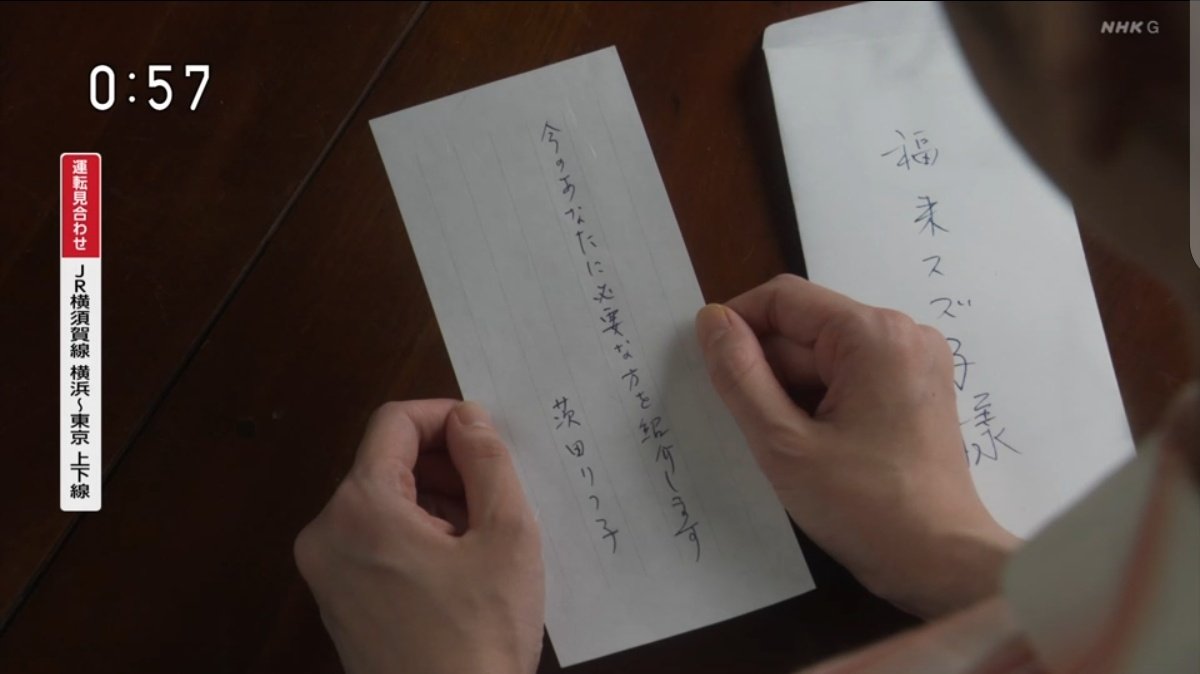 NHK G
0:57
運転見合わせ
JR横須賀線 横浜～東京 上下線
今のあなたに必要な方を紹介します
茨田りつ子
福来スズ子様